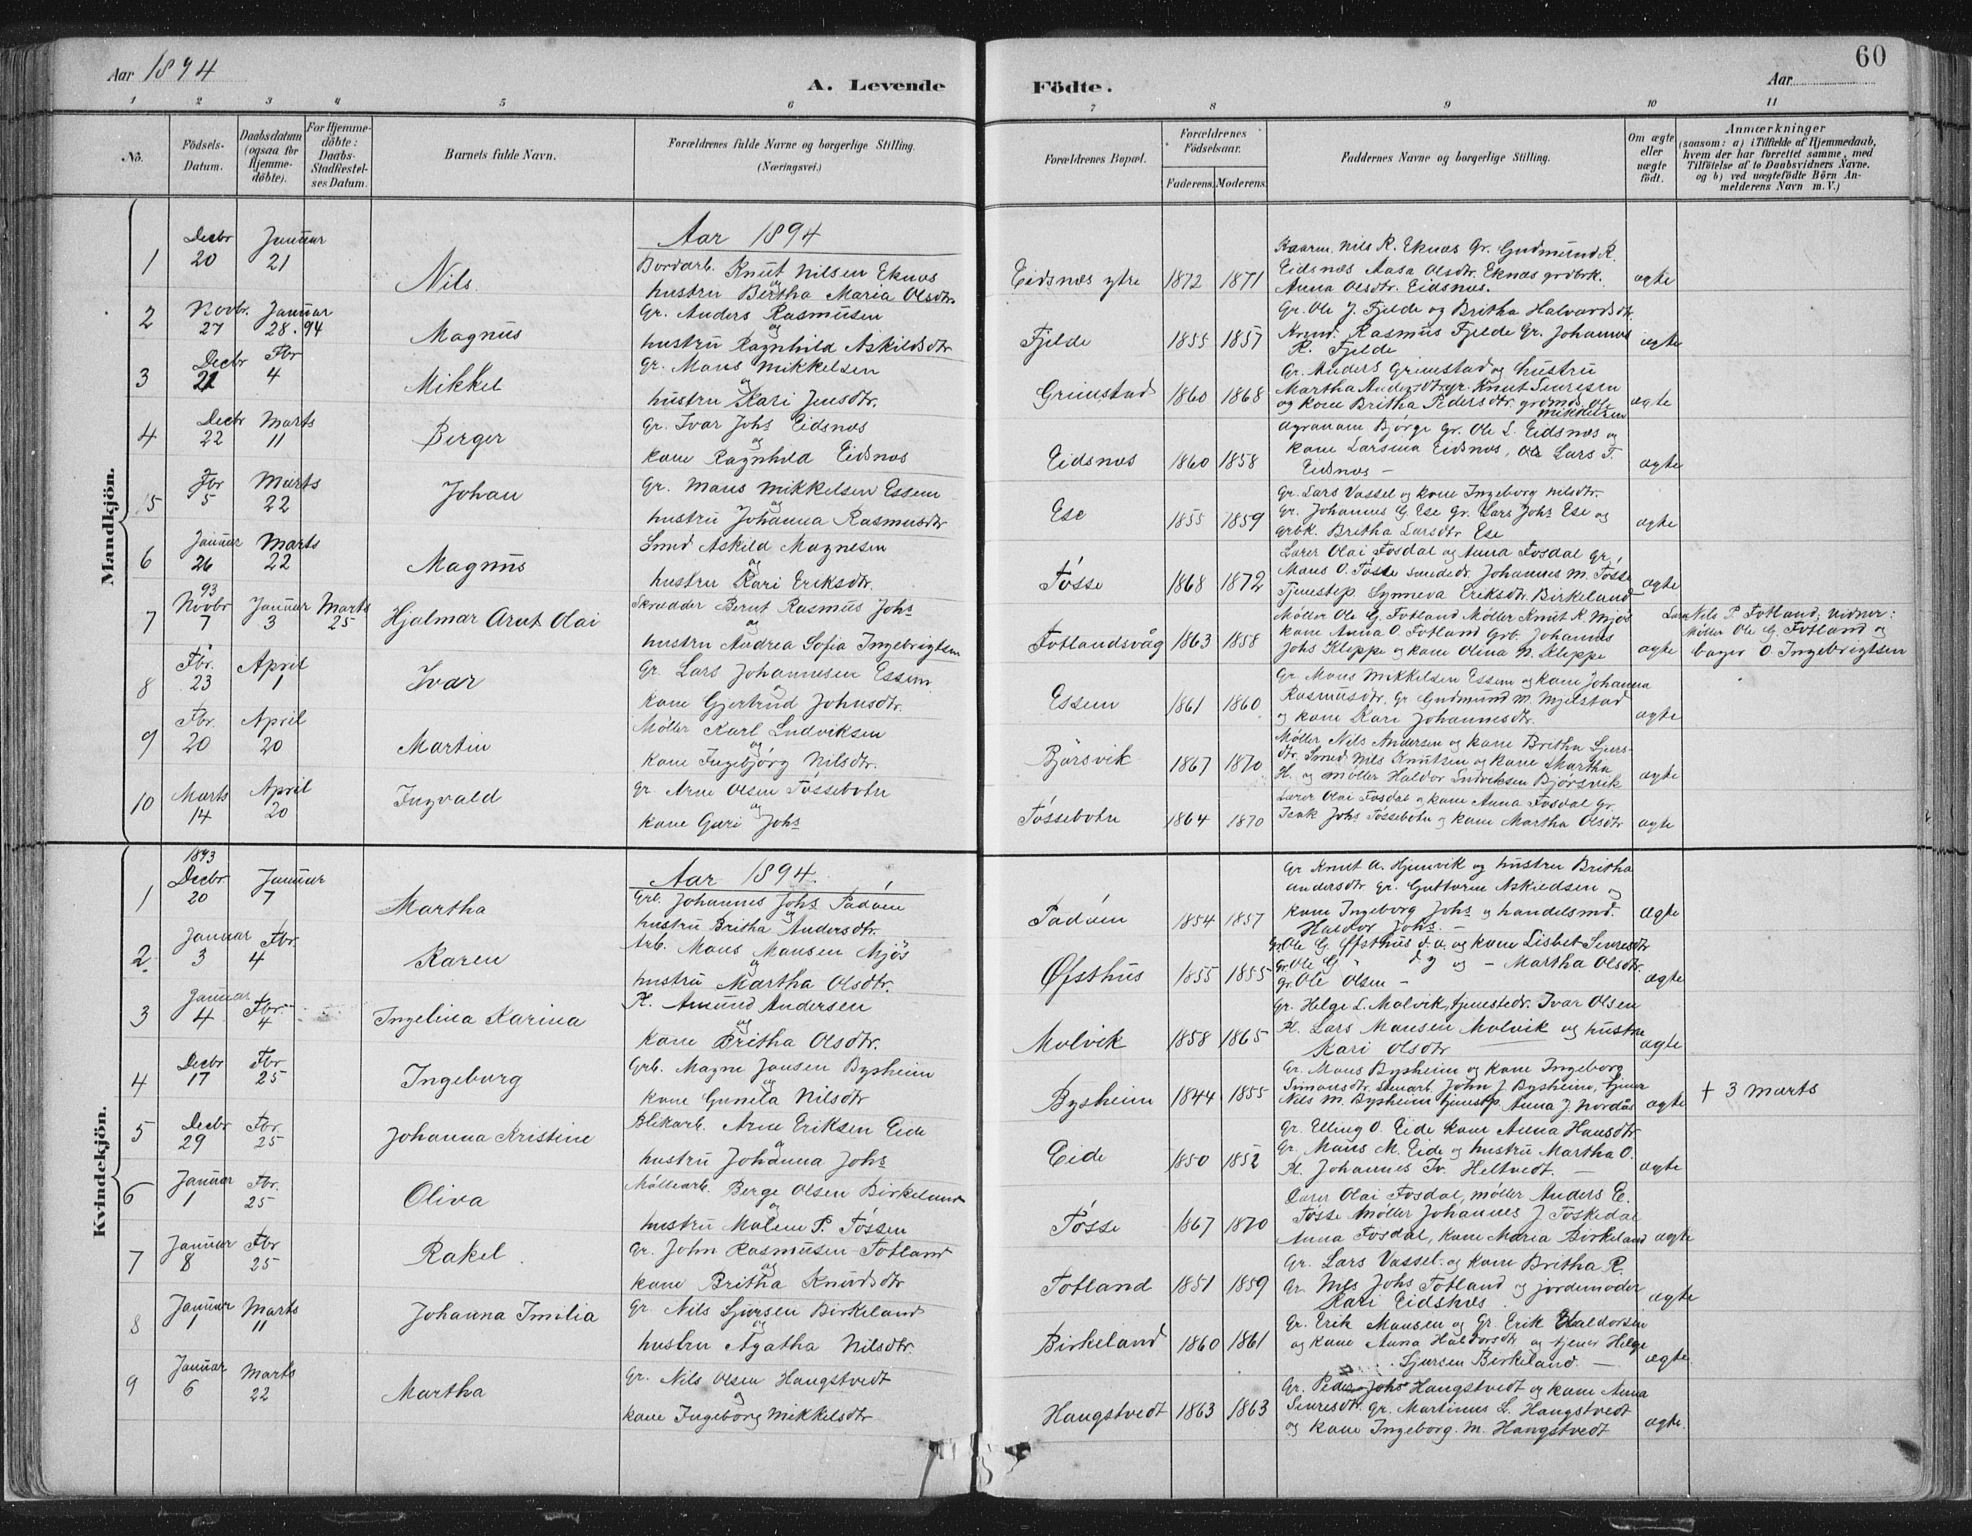 Aar 1894
A. Levende Födte.
Aar
60
1 2 3 4 5 6 7 8 9 10 11
No.
Födsels-Datum.
Daabsdatum (ogsaa for Hjemme-döbte).
For Hjemme-döbte: Daabs-Stadfæstel-ses Datum.
Barnets fulde Navn.
Forældrenes fulde Navne og borgerlige Stilling. (Næringsvei.)
Forældrenes Bopæl.
Forældrenes Födselsaar.
Faderens. Moderens.
Faddernes Navne og borgerlige Stilling.
Om ægte eller uægte født.
Anmærkninger
(saasom: a) i Tilfælde af Hjemmedaab, hvem der har forrettet samme, med Tilföielse af to Daabsvidners Navne. og b) ved uægtefödte Börn An-melderens Navn m. V.)
Mandkjön.
Aar 1894
1 Decbr 20 Januar 21 Nils.
Bordarb. Knut Nilsen Eknæs
og
hustru Bertha Maria Olsdtr
Eidsnæs ytre 1872 1871
Kaarm. Nils R. Eknæs Gr. Gudmund R.
Eidsnæs Aasa Olsdtr. Eknæs grdbrk.
Anna Olsdtr. Eidsnæs.
ægte
2 Novbr. 27 Januar 28. 94 Magnus
Gr. Anders Rasmusen
og
hustru Ragnhild Askildsdtr
Fjelde 1855 1857
Gr. Ole J. Fjelde og Britha Halvardsdtr.
Rasmus Fjelde Gr. Johannes
R. Fjelde
ægte
3 Decbr 21 Fbr 4 Mikkel
Gr. Mons Mikkelsen
og
hustru Kari Jensdtr.
Grimstad 1860 1868
Gr. Anders Grimstad og hustru
Martha Andersdtr gr. Knut Sjursen
og kone Britha Pedersdtr. Ole
Mikkelsen
ægte
4 Decbr 22 Marts 11 Berger
Gr. Ivar Johs Eidsnæs
og
kone Ragnhild Eidsnæs
Eidsnæs 1860 1858
Bjørge gr. Ole L. Eidsnæs og
kone Larsina Eidsnæs, Lars T.
Eidsnæs -
ægte
5 Fbr 5 Marts 22 Johan
Gr. Mons Mikkelsen Essem
og
hustru Johanna Rasmusdtr
Ese 1855 1859
Gr. Lars Vassel og kone Ingeborg Nilsdtr.
Gr. Johannes G. Ese Gr. Lars Johs Ese og
grbk. Britha Larsdtr Ese
ægte
6 Januar 26 Marts 22 Magnus
Smed Askild Magnesen
og
hustru Kari Eriksdtr.
Tøsse 1868 1872
Lærer Olai Fosdal og Anna Fosdal Gr.
Mons O. Tøsse Johannes M. Tøsse
Tjenestep. Synneva Eriksdtr. Birkeland
ægte
7 93 Novbr 7 Januar 3 Marts 25 Hjalmar Arnt Olai
Skrædder Bernt Rasmus Johs
og
hustru Andrea Sofia Ingebrigtsen
Fotlandsvåg 1863 1858
Møller Ole G. Fotland Møller Knut K. Mjøs
kone Anna O. Fotland Grb. Johannes
Johs Kleppe og kone Olina N. Kleppe
ægte
Nils P. Fotland, Vidner:
Møller Ole G. Fotland og
bager O. Ingebrigtsen
8 Fbr. 23 April 1 Ivar
Gr. Lars Johannesen Essem
og
kone Gjertrud Johnsdtr.
Essem 1861 1860
Gr. Mons Mikkelsen Essem og kone Johanna
Rasmusdtr. Gr Gudmund M. Mjelstad
og kone Kari Johannesdtr.
ægte
9 Fbr. 20 April 20 Martin
Møller Karl Ludviksen
og
kone Ingebjørg Nilsdtr.
Bjørsvik 1867 1870
Møller Nils Andersen og kone Britha Sjurs-
dtr. Smed Nils Knutsen og kone Martha
H. og møller Haldor Ludviksen Bjørsvik
ægte
10 Marts 14 April 20 Ingvald
Gr Arne Olsen Tøssebotn
og
kone Guri Johs
Tøssebotn 1864 1870
Lærer Olai Fosdal og kone Anna Fosdal gr.
Isak Johs Tøssebotn og kone Martha Olsdtr
ægte
Kvindekjön.
Aar 1894.
1 1893 Decbr 20 Januar 7 Martha
Grb. Johannes Johs Padøen
og
hustru Britha Andersdtr.
Padøen 1854 1857
Gr Knut A. Hjemvik og hustru Britha
Andersdtr Gr. Guttorm Askildsen og
kone Ingeborg Johs og handelsmd.
Haldor Johs. -
ægte
2. Januar 3 Fbr. 4 Karen
Arb. Mons Monsen Mjøs
og
hustru Martha Olsdtr.
Øfsthus 1855 1855
Gr. Ole G. Øfsthus d. æ. og kone Lisbet Sjursdtr
Gr. Ole G " d. y og - Martha Olsdtr.
Gr. Ole Olsen -
ægte
3 Januar 4 Fbr. 4 Ingelina Karina
H. Amund Andersen
og
kone Britha Olsdtr.
Molvik 1858 1865
Gr. Helge L. Molvik, tjenestedr. Ivar Olsen
H. Lars Monsen Molvik og hustru
Kari Olsdtr
ægte
4 Decbr 17 Fbr 25 Ingeborg
Grb. Magne Jonsen Bysheim
og
kone Gunila Nilsdtr
Bysheim 1844 1855
Gr. Mons Bysheim og kone Ingeborg
Simonsdtr, John J. Bysheim, tjener
Nils M. Bysheim tjenestp. Anna J. Nordås
ægte
† 3 marts
5 Decbr 29 Fbr. 25 Johanna Kristine
Blikarb. Arne Eriksen Eide
og
hustru Johanna Johs
Eide 1850 1852
Gr. Elling O. Eide kone Anna Hansdtr
Gr. Mons M. Eide og hustru Martha O.
H. Johannes Iv. Heltvedt -
ægte
6 Januar 1 Fbr. 25 Oliva
Møllearb. Berge Olsen Birkeland
og
hustru Malene P. Tøssen
Tøsse 1867 1870
Lærer Olai Fosdal, møller Anders E.
Tøsse Møller Johannes J. Toskedal
Anna Fosdal, kone Maria Birkeland
ægte
7 Januar 8 Fbr 25 Rakel.
Gr. John Rasmusen Fotland
og
kone Britha Knudsdtr
Fotland 1851 1859
Gr. Lars Vassel. og kone Britha R.
Gr. Nils Johs Fotland og jordemoder
Kari Eidsnes.
ægte
8 Januar 1 Marts 11 Johanna Imilia
Gr. Nils Sjursen Birkeland
og
hustru Agatha Nilsdtr.
Birkeland 1860 1861
Gr. Erik Monsen og Gr. Erik Haldorsen
og kone Anna Haldorsdtr og tjener Helge
Sjursen Birkeland. -
ægte.
9 Januar 6 Marts 22 Martha
Gr. Nils Olsen Hangstvedt
og
kone Ingeborg Mikkelsdtr
Hangstvedt 1863 1863
Gr. Peder Johs Hangstvedt og kone Anna
Sjursdtr. Gr. Martinus L. Hangstvedt
og kone Ingeborg. M. Hangstvedt
ægte.